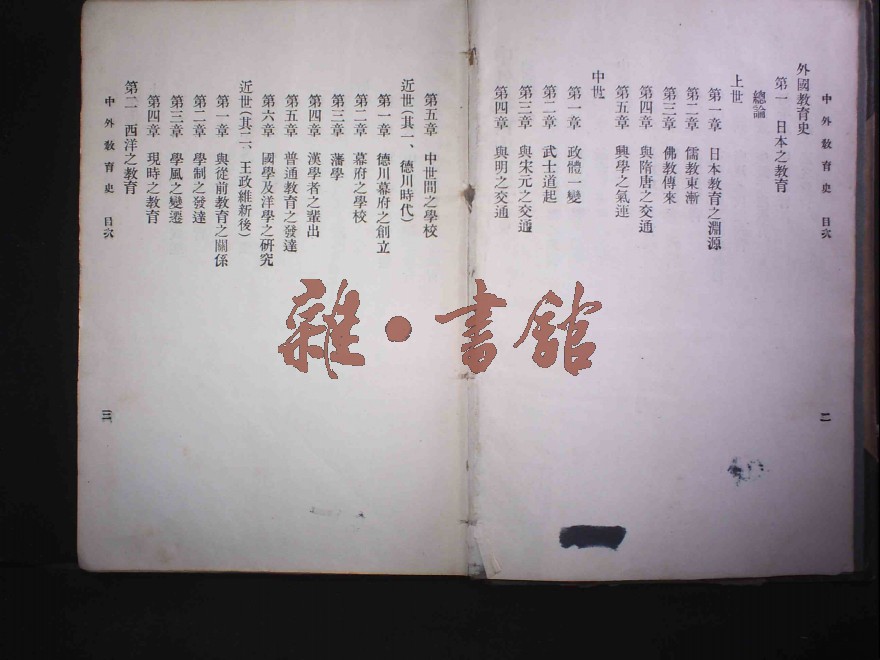 中外教育史 目次
二
外國教育史
第一 日本之教育
總論
上世
第一章 日本教育之淵源
第二章 儒教東漸
第三章 佛教傳來
第四章 與隋唐之交通
第五章 興學之氣運
中世
第一章 政體一變
第二章 武士道起
第三章 與宋元之交通
第四章 與明之交通
第五章 中世間之學校
近世(其一、德川時代)
第一章 德川幕府之創立
第二章 幕府之學校
第三章 藩學
第四章 漢學者之輩出
第五章 普通教育之發達
第六章 國學及洋學之研究
近世(其二、王政維新後)
第一章 與從前教育之關係
第二章 學制之發達
第三章 學風之變遷
第四章 現時之教育
第二 西洋之教育
中外教育史 目次
三
雜·書館